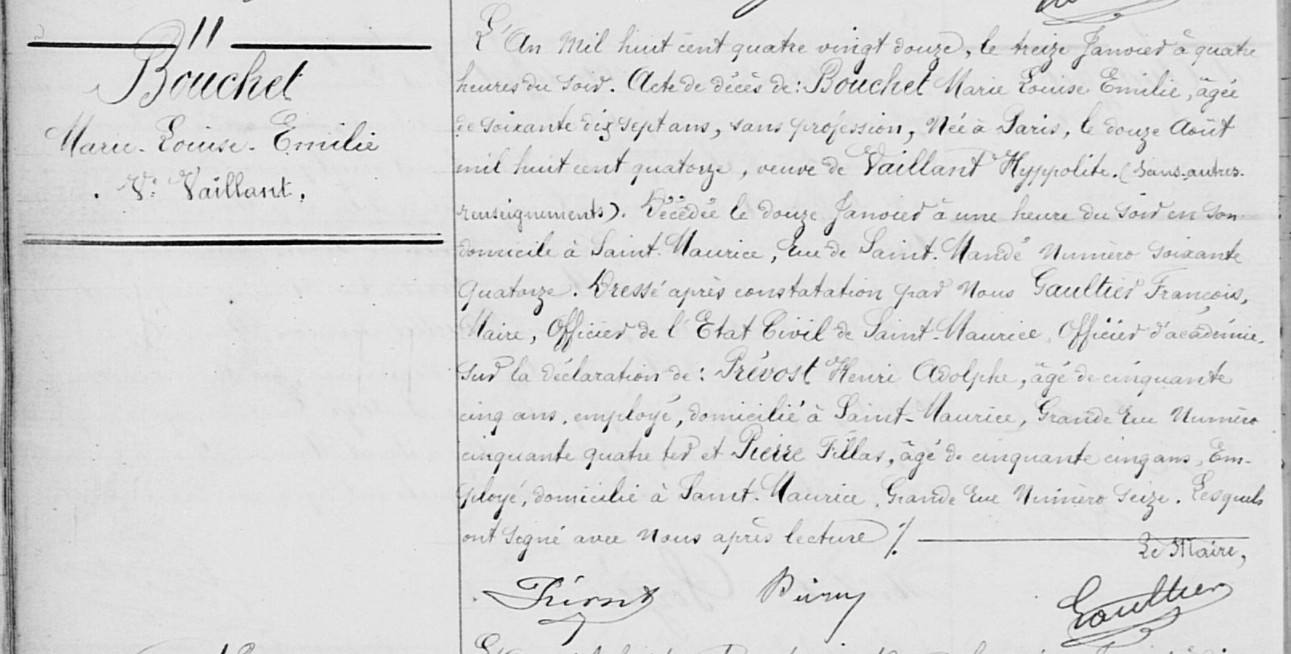 11
Bouchet
Marie-Louise-Emilie
Vᵉ Vaillant.
L'An Mil huit cent quatre vingt douze, le treize Janvier à quatre
heures du soir. Acte de décès de: Bouchet Marie Louise Emilie, âgée
de soixante dix sept ans, sans profession, Née à Paris, le douze Août
mil huit cent quatorze, veuve de Vaillant Hyppolite. (Sans autres
renseignements). Décédée le douze Janvier à une heure du soir en son
domicile à Saint-Maurice, Rue de Saint-Mandé Numéro soixante
quatorze. Dressé après constatation par Nous Gaultier François,
Maire, Officier de l'Etat Civil de Saint-Maurice, Officier d'académie.
Sur la déclaration de: Prévost Henri Adolphe, âgé de cinquante
cinq ans, employé, domicilié à Saint-Maurice, Grande Rue Numéro
cinquante quatre ter et Pierre Fillas, âgé de cinquante cinq ans, Em-
ployé, domicilié à Saint-Maurice, Grande Rue Numéro seize. Lesquels
ont signé avec Nous après lecture ./.
Le Maire,
Prévost
Gaultier